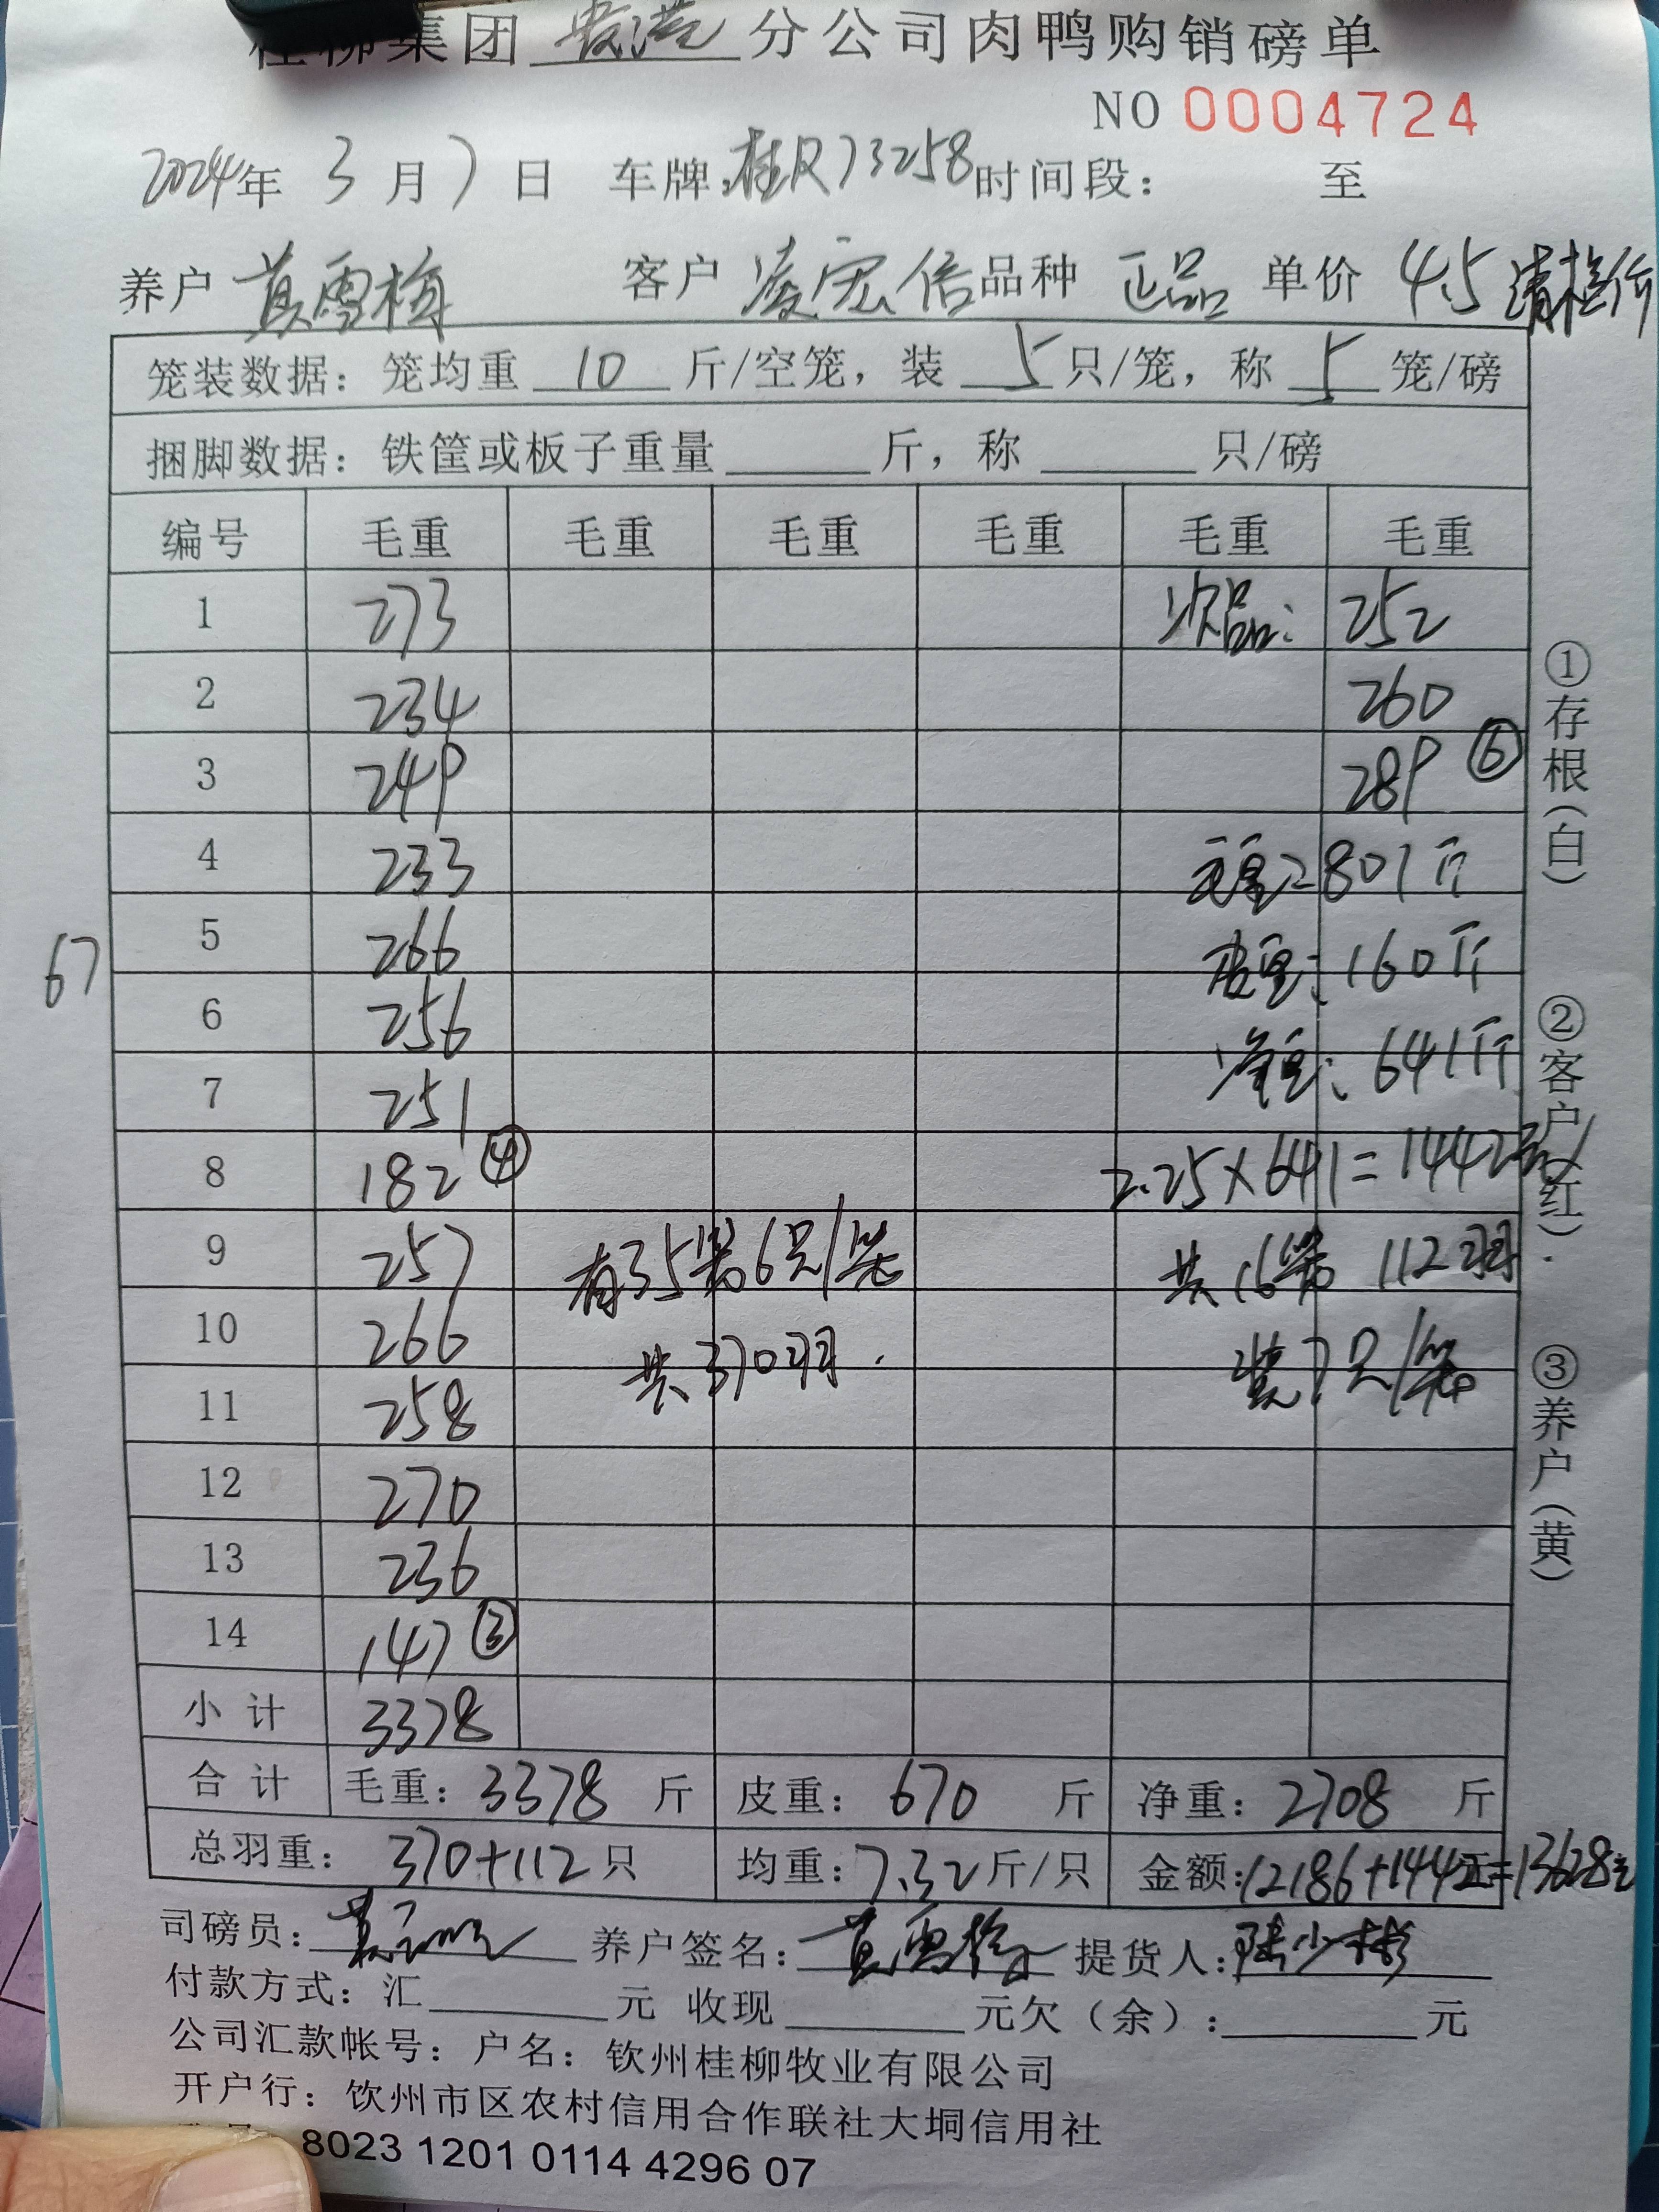 桂柳集团 贵港 分公司肉鸭购销磅单
NO 0004724
2024年 3 月 7 日 车牌:桂R73258 时间段: 至
养户 莫雪梅 客户 凌宏信 品种 正品 单价 4.5 请核价
笼装数据: 笼均重 10 斤/空笼, 装 5 只/笼, 称 5 笼/磅
捆脚数据: 铁筐或板子重量 斤, 称 只/磅
编号 毛重 毛重 毛重 毛重 毛重 毛重
1 273 次品: 252
2 234 260
3 249 289 ⑥
4 233 毛重: 801斤
5 266 皮重: 160斤
67
6 256
7 251 净重: 641斤
8 182 ④ 2.25×641=1442元
9 257 有35装6只/笼 共16笼 112羽
10 266 共370羽. 装7只/笼
11 258
12 270
13 236
14 147 ③
小计 3378
合计 毛重: 3378 斤 皮重: 670 斤 净重: 2708 斤
总羽重: 370+112 只 均重: 7.32 斤/只 金额: 12186+1442=13628元
司磅员: 养户签名: 莫雪梅 提货人: 陆少彬
付款方式: 汇 元 收现 元欠(余): 元
公司汇款帐号: 户名: 钦州桂柳牧业有限公司
开户行: 钦州市区农村信用合作联社大垌信用社
8023 1201 0114 4296 07
①存根(白) ②客户(红) ③养户(黄)